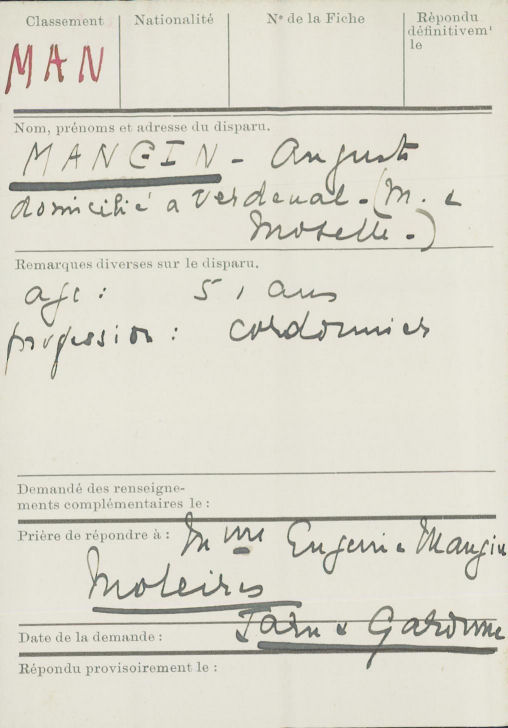 Classement
Nationalité
Nº de la Fiche
Répondu
définitivemt
le
MAN
Nom, prénoms et adresse du disparu.
MANGIN - Auguste
domicilié a Verdenal - (M. &
Moselle.)
Remarques diverses sur le disparu.
age : 51 ans
profession : cordonnier
Demandé des renseigne-
ments complémentaires le :
Prière de répondre à : Mme Eugenie Mangin
Moleires
Tarn & Garonne
Date de la demande :
Répondu provisoirement le :